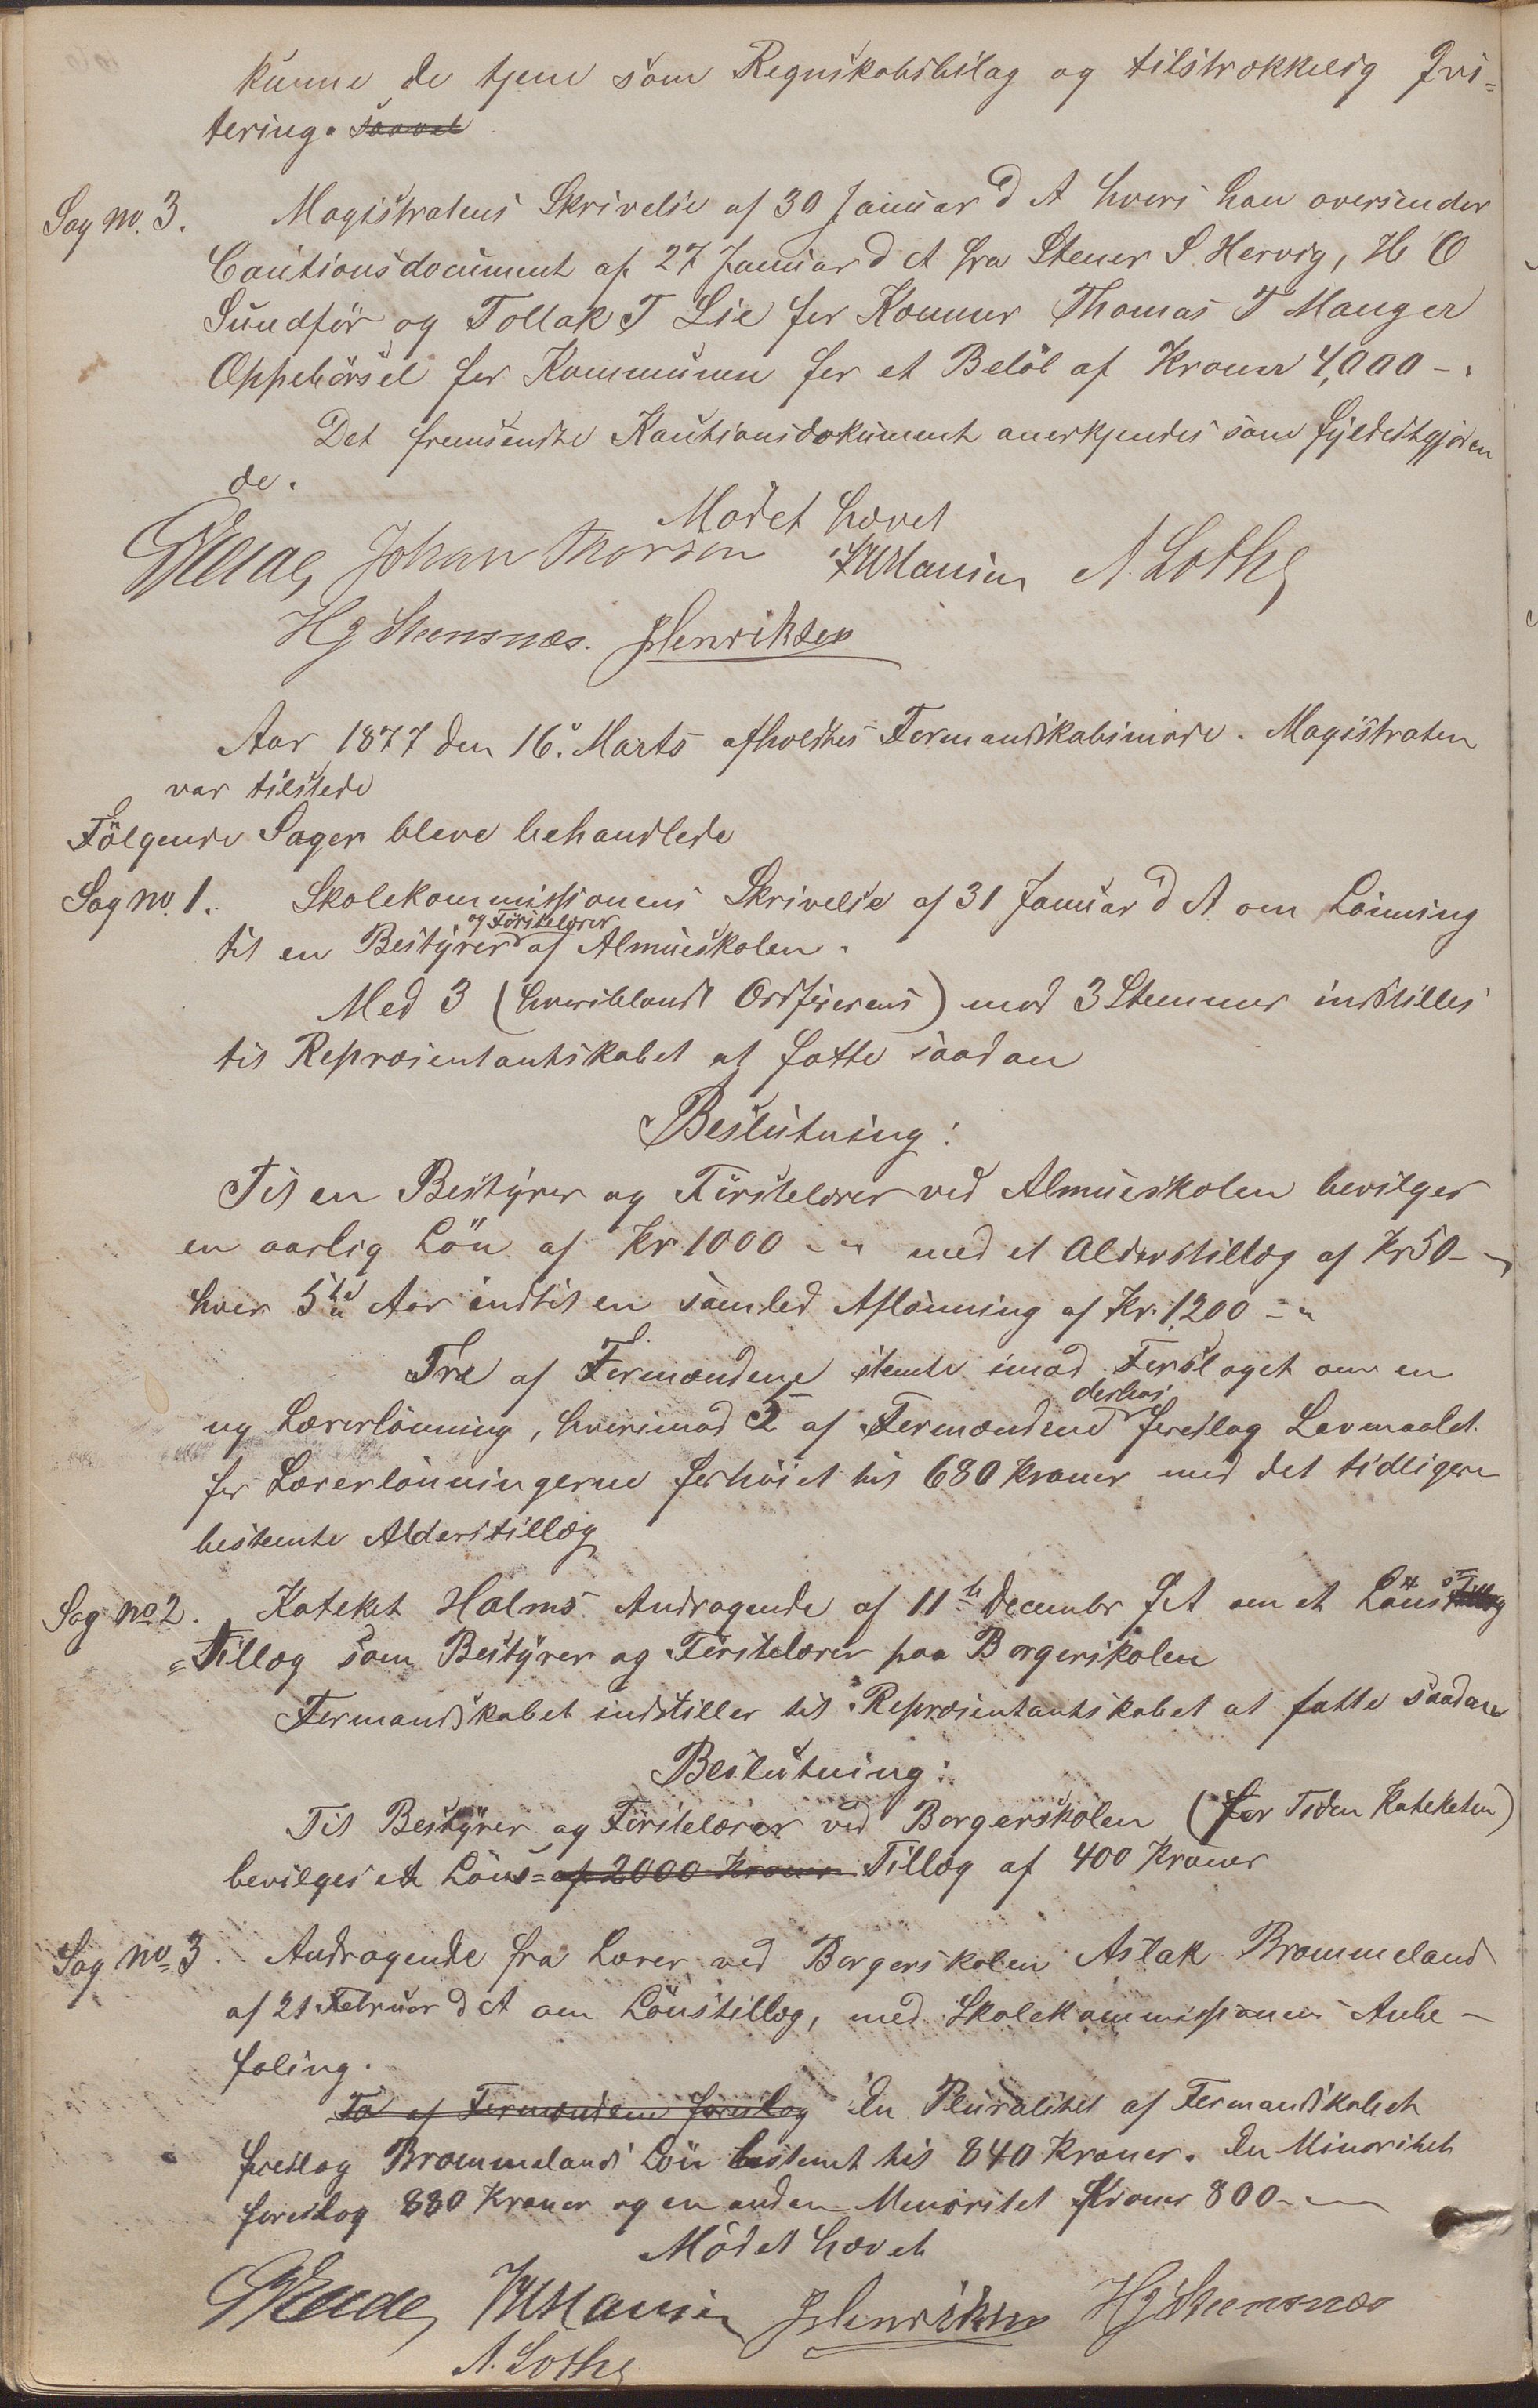 kunne de tjene som Regnskabsbilag og tilstrækkelig Qvi=
tering. saavel
Sag no. 3. Magistratens Skrivelse af 30 Januar d A hvori han oversender
Cautionsdocument af 27 Januar d A fra Stener S. Hervig, H O
Sundför og Tollak T Lie for Kæmner Thomas T Mangers
Oppebörsel for Kommunen for et Belöb af Kroner 4,000 - .
Det fremsendte Kautionsdokument anerkjendes som fyldestgjören
de.
Mödet hævet
Johan Thorsen A. Lothe
Hg Steensnæs. Henriksen
Aar 1877 den 16. Marts afholdtes Formandskabsmöde. Magistraten
var tilstede
Fölgende Sager bleve behandlede
Sag no. 1. Skolekommissionens Skrivelse af 31 Januar d A om Lönning
og Förstelærer
til en Bestyrer af Almueskolen.
Med 3 (hvoriblandt Ordförerens) mod 3 Stemmer indstilles
til Repræsentantskabet at fatte saadan
Beslutning:
Til en Bestyrer og Förstelærer ved Almueskolen bevilges
en aarlig Lön af Kr 1000 - " med et Alderstillæg af Kr 50 - "
hver 5te Aar indtil en samled Aflönning af Kr. 1,200 - "
Tre af Formændene stemte imod Forslaget om en
derhos
ny Lærerlönning, hvorimod 5 af Formændene foreslog Lavmaalet
for Lærerlönningerne forhöiet til 680 Kroner med det tidligere
bestemte Alderstillæg
Sag no 2. Kateket Holms Andragende af 11te December f A om et Löns=
=Tillæg som Bestyrer og Förstelærer paa Borgerskolen
Formandskabet indstiller til Repræsentantskabet at fatte saadan
Beslutning:
Til Bestyrer og Förstelærer ved Borgerskolen (for Tiden Kateketen)
bevilges et Löns= af 2000 Kroner Tillæg af 400 Kroner
Sag no 3. Andragende fra Lærer ved Borgerskolen Aslak Brommeland
af 21 Februar d A om Lönstillæg, med Skolekommissionens Anbe-
faling.
To af Formændene foreslog En Pluralitet af Formandskabet
foreslog Brommelands Lön bestemt til 840 Kroner. En Minoritet
foreslog 880 Kroner og en anden Minoritet Kroner 800 - "
Mödet hævet
Henriksen Hg Steensnæs
A. Lothe